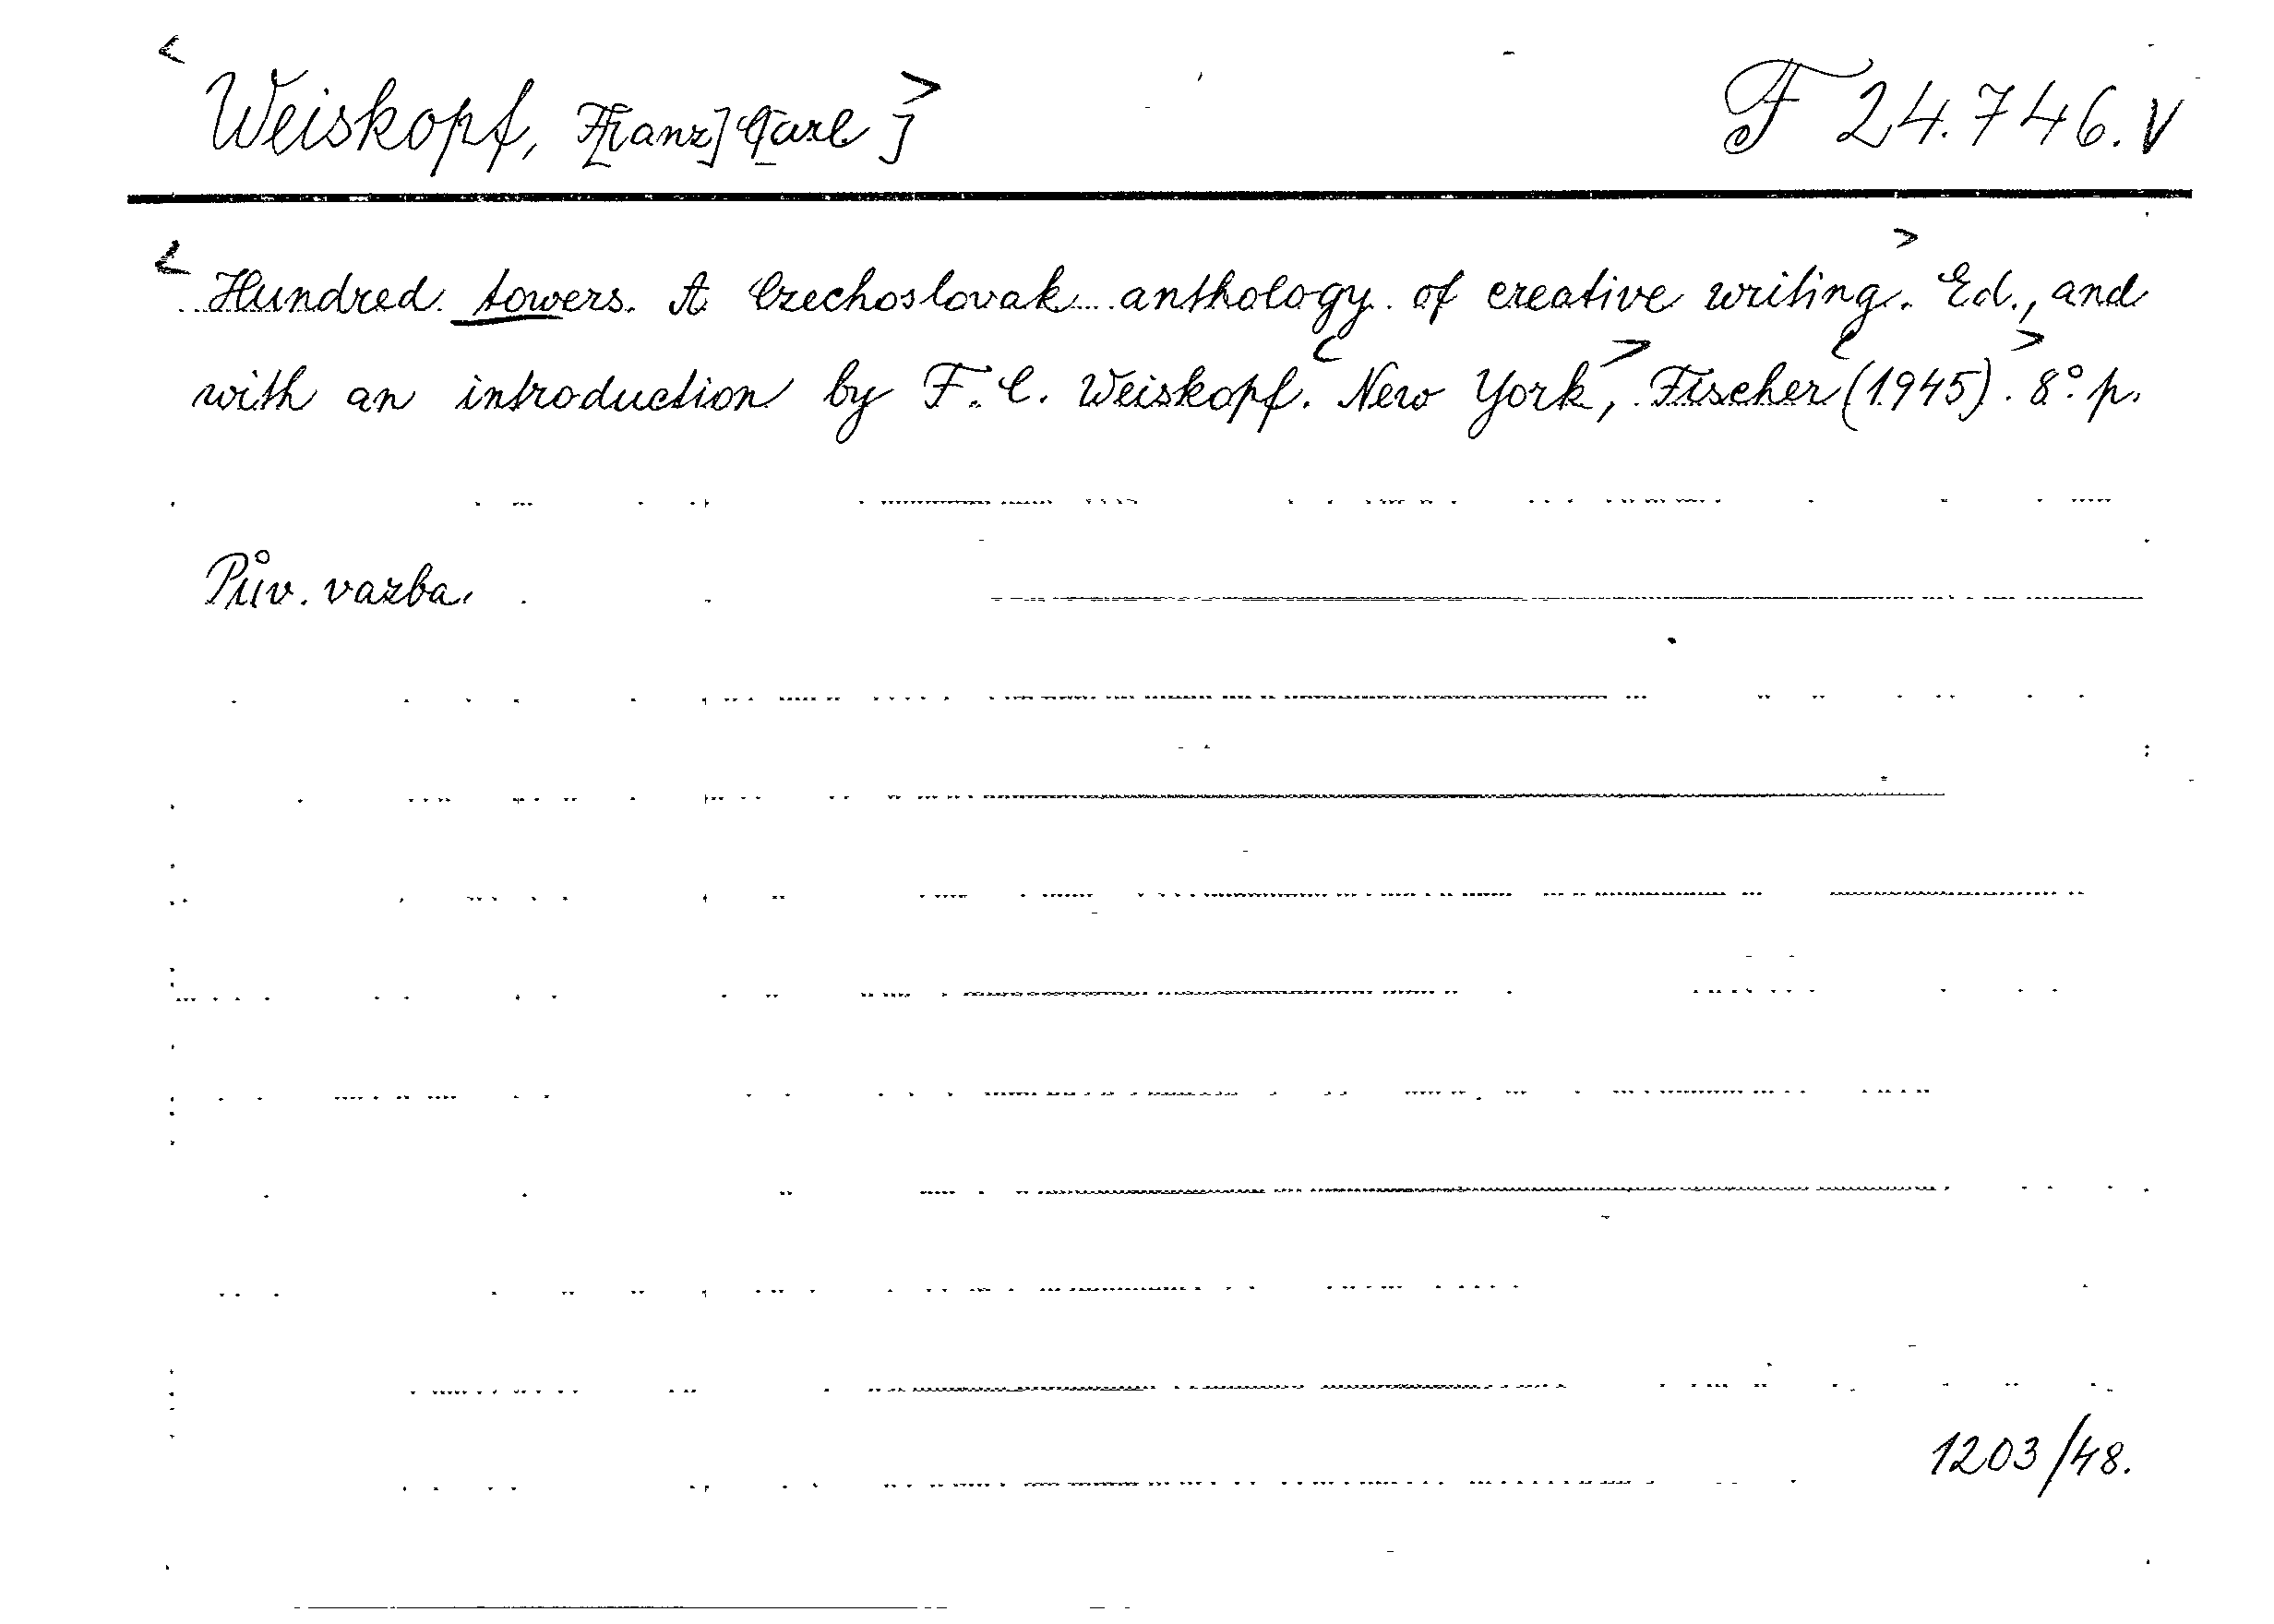 <Weiskopf, F[ranz] C[arl]> F 24.746. V
<Hundred towers. A Czechoslovak anthology of creative writing.> Ed., and
with an introduction by F. C. Weiskopf. <New York,> Fischer <(1945)>. 8° p.
Pův. vazba.
1203/48.